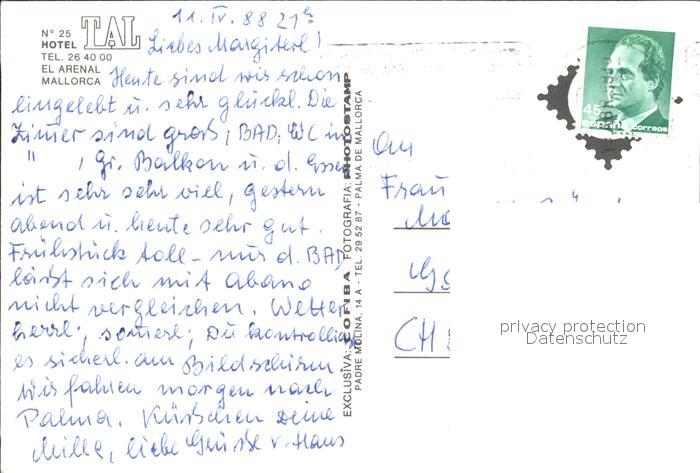 11. IV. 88 21h
N° 25
HOTEL TAL
TEL. 26 40 00
EL ARENAL
MALLORCA
Liebes Margiterl!
Heute sind wir schon
eingelebt u. sehr glückl. Die
Zimer sind groß, BAD, WC im
" , Gr. Balkon u. d. Essen
ist sehr sehr viel, gestern
abend u. heute sehr gut.
Frühstück toll - nur d. BAD
läßt sich mit Abano
nicht vergleichen. Wetter
herrl., somerl; Du kontrollierst
es sicherl. am Bildschirm
Wir fahren morgen nach
Palma. Küsschen Deine
Milla, liebe Grüsse v. Hans
EXCLUSIVA: COFIBA FOTOGRAFIA: PHOTOSTAMP
PADRE MOLINA, 14 A - TEL. 29 52 87 - PALMA DE MALLORCA
45
españa correos
An
Frau
CH
privacy protection
Datenschutz